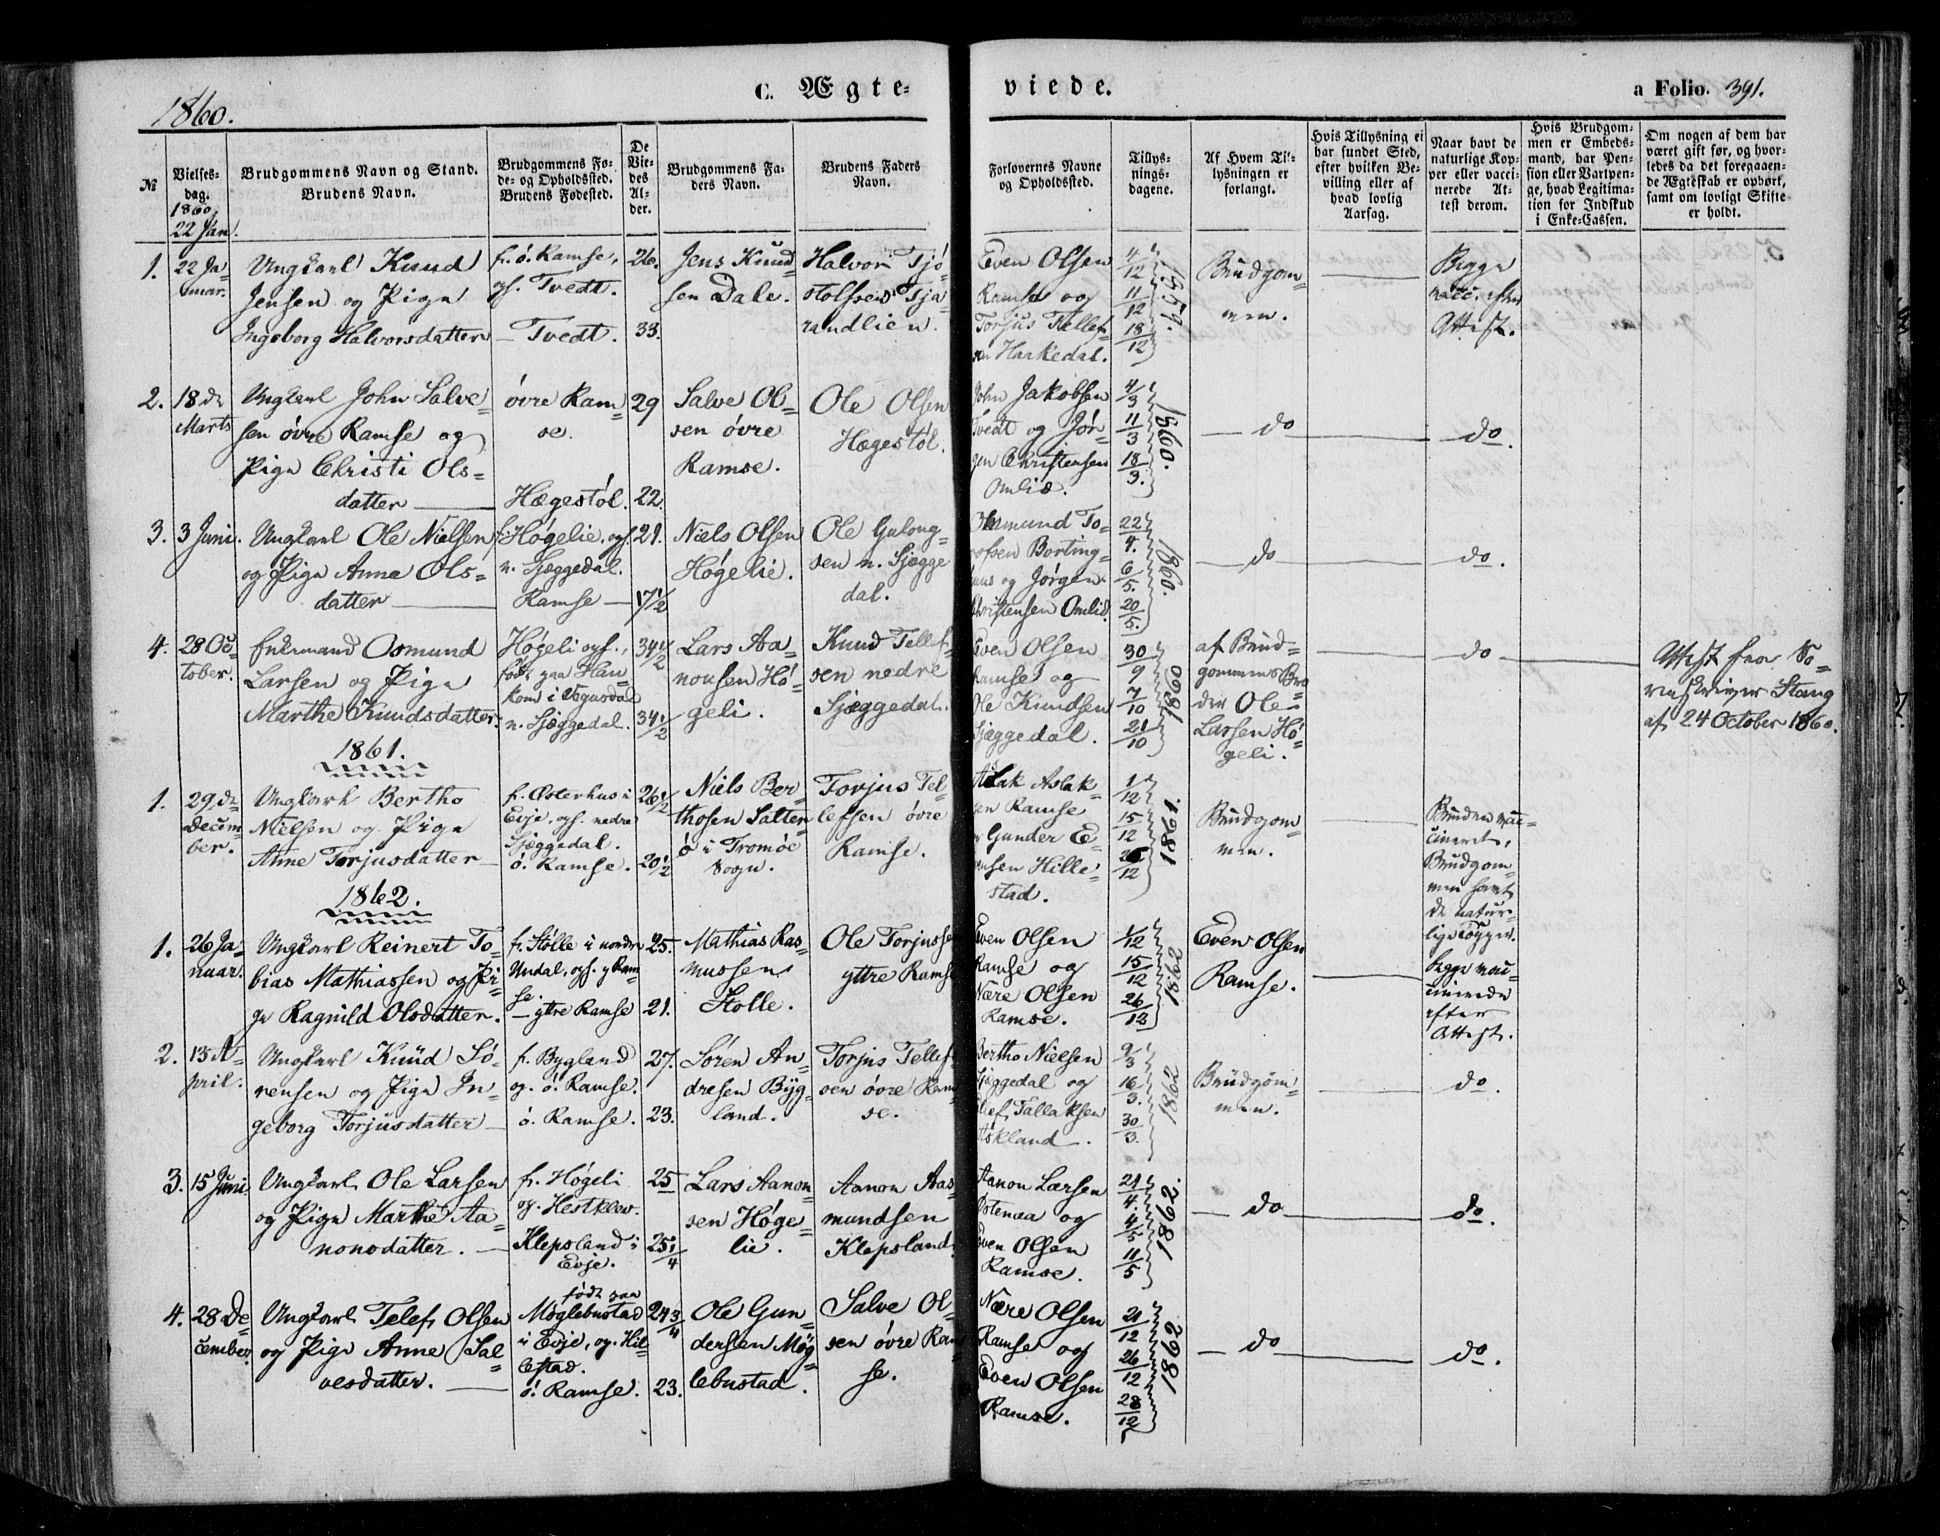 1860.
C. Ægte-
viede.
a Folio. 391.
№
Vielses-
dag.
1860,
22 Jan.
Brudgommens Navn og Stand.
Brudens Navn.
Brudgommens Fø-
de- og Opholdssted.
Brudens Fødested.
De
Vie-
des
Al-
der.
Brudgommens Fa-
ders Navn.
Brudens Faders
Navn.
Forlovernes Navne
og Opholdssted.
Tillys-
nings-
dagene.
Af Hvem Til-
lysningen er
forlangt.
Hvis Tillysning ei
har fundet Sted,
efter hvilken Be-
villing eller af
hvad lovlig
Aarsag.
Naar havt de
naturlige Kop-
per eller vacci-
nerede At-
test derom.
Hvis Brudgom-
men er Embeds-
mand, har Pen-
sion eller Vartpen-
ge, hvad Legitima-
tion for Indskud
i Enke-Cassen.
Om nogen af dem har
været gift før, og hvor-
ledes da det foregaaen-
de Ægteskab er ophørt,
samt om lovligt Skifte
er holdt.
1.
22 Ja-
nuar.
Ungkarl Knud
Jensen og Pige
Ingeborg Halvorsdatter
f. ö. Ramse,
opf. Tvedt.
— Tvedt.
26.
33.
Jens Knud-
sen Dale.
Halvor Tjö-
stolfsen Tja
randlien.
Even Olsen
Ramse og
Torjus Tellef-
sen Haakedal.
4/12
11/12
18/12
1859.
Brudgom-
men.
Begge
vacc. efter
Attest.
2.
18 de
Marts
Ungkarl John Salve-
sen övre Ramse og
Pige Christi Ols-
datter
övre Ram-
se.
Hægestöl.
29
22.
Salve Ol-
sen övre
Ramse.
Ole Olsen
Hægestöl.
John Jakobsen
Tvedt og Jör-
gen Christensen
Omlid.
4/3
11/3
18/3.
1860.
do
do.
3.
3 Juni.
Ungkarl Ole Nielsen
og Pige Anne Ols-
datter
f. Högelie, opf.
n. Sjæggedal.
Ramse
21.
17 1/2
Niels Olsen
Högelie.
Ole Gulong-
sen n. Sjægge
dal.
Omund To-
Jörgen
Christensen Omlid.
22/4.
6/5.
20/5.
1860.
do
do.
4.
28 Oc-
tober.
Enkemand Osmund
Larsen og Pige
Marthe Knudsdatter.
Högeli opf.,
född paa Hau-
kom i Vegusdal
n. Sjæggedal.
34 1/2
34 1/2
Lars Aa-
nonsen Hö-
geli.
Knud Tellef-
sen nedre
Sjæggedal.
Even Olsen
Ramse og
Ole Knudsen
Sjæggedal.
30/9
7/10
21/10
1860
af Brud-
gommens Bro
der Ole
Larsen Hö-
geli.
do
Attest fra So-
renskriver Stang
af 24 October 1860.
1861.
1.
29 de
Decem-
ber.
Ungkarl Bertho
Nielsen og Pige
Anne Torjusdatter
f. Österhus i
Evje, opf. nedre
Sjæggedal.
ö. Ramse.
26 1/2
20 1/2
Niels Ber-
thosen Salter-
ö i Tromöe
Sogn.
Torjus Tel-
lefsen övre
Ramse.
Aslak Aslak-
sen Ramse
Gunder E-
vensen Hille-
stad.
1/12
15/12
1861.
Brudgom-
men.
Bruden vac-
cineret,
Brudgom-
men havt
de natur-
lige Kopper.
1862.
1.
26 Ja-
nuar.
Ungkarl Reinert To-
bias Mathiassen og Pi-
ge Ragnild Olsdatter.
f. Stölle i nordre
Undal, opf. y Ram-
se.
— yttre Ramse
25.
21.
Mathias Ras-
mussen
Stolle.
Ole Torjussen
yttre Ramse
Even Olsen
Ramse og
Nære Olsen
Ramse.
1/12
15/12
26/12
1862
Even Olsen
Ramse.
Begge vac-
cinerede
efter
Attest.
2.
13 A-
pril.
Ungkarl Knud Sö-
rensen og Pige In-
geborg Torjusdatter
f. Bygland
og. ö. Ramse.
ö. Ramse.
27.
23.
Sören An-
dresen Byg-
land.
Torjus Tellef-
sen övre Ram
se.
Bertho Nielsen
Sjæggedal og
Tallaksen
Askland.
9/3
16/3.
30/3.
1862
Brudgom-
men.
do.
3.
15 Juni
Ungkarl Ole Larsen
og Pige Marthe Aa-
nonsdatter.
f. Högeli
og. Hestklev.
Klepsland i
Evje.
25
25 1/4
Lars Aanon-
sen Höge-
lie.
Aanon Aas-
mundsen
Klepsland.
Aanon Larsen
Ostenaa og
Even Olsen
Ramse.
21/4.
4/5
11/5
1862.
do
do.
4.
28 De-
cember.
Ungkarl Telef Olsen
og Pige Anne Sal-
vesdatter.
född paa
Möglebustad
i Evje, og. Hil-
lestad.
ö. Ramse.
24 3/4
23.
Ole Gun-
dersen Mög-
lebustad.
Salve Ol-
sen övre Ram
se.
Nære Olsen
Ramse og
Even Olsen
Ramse.
21/12
26/12
28/12
1862
do
do.